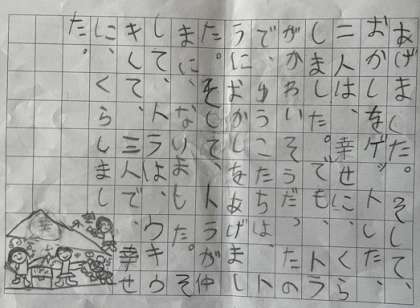 あげました。そして、
おかしをゲットした、
二人は、幸せに、くら
しました。でも、トラ
がかわいそうだったの
で、ゆうこたちは、ト
ラに、おかしをあげまし
た。そして、トラが仲
まに、なりました。そ
して、トラは、ウキウ
キして、三人で、幸せ
に、くらしまし
た。